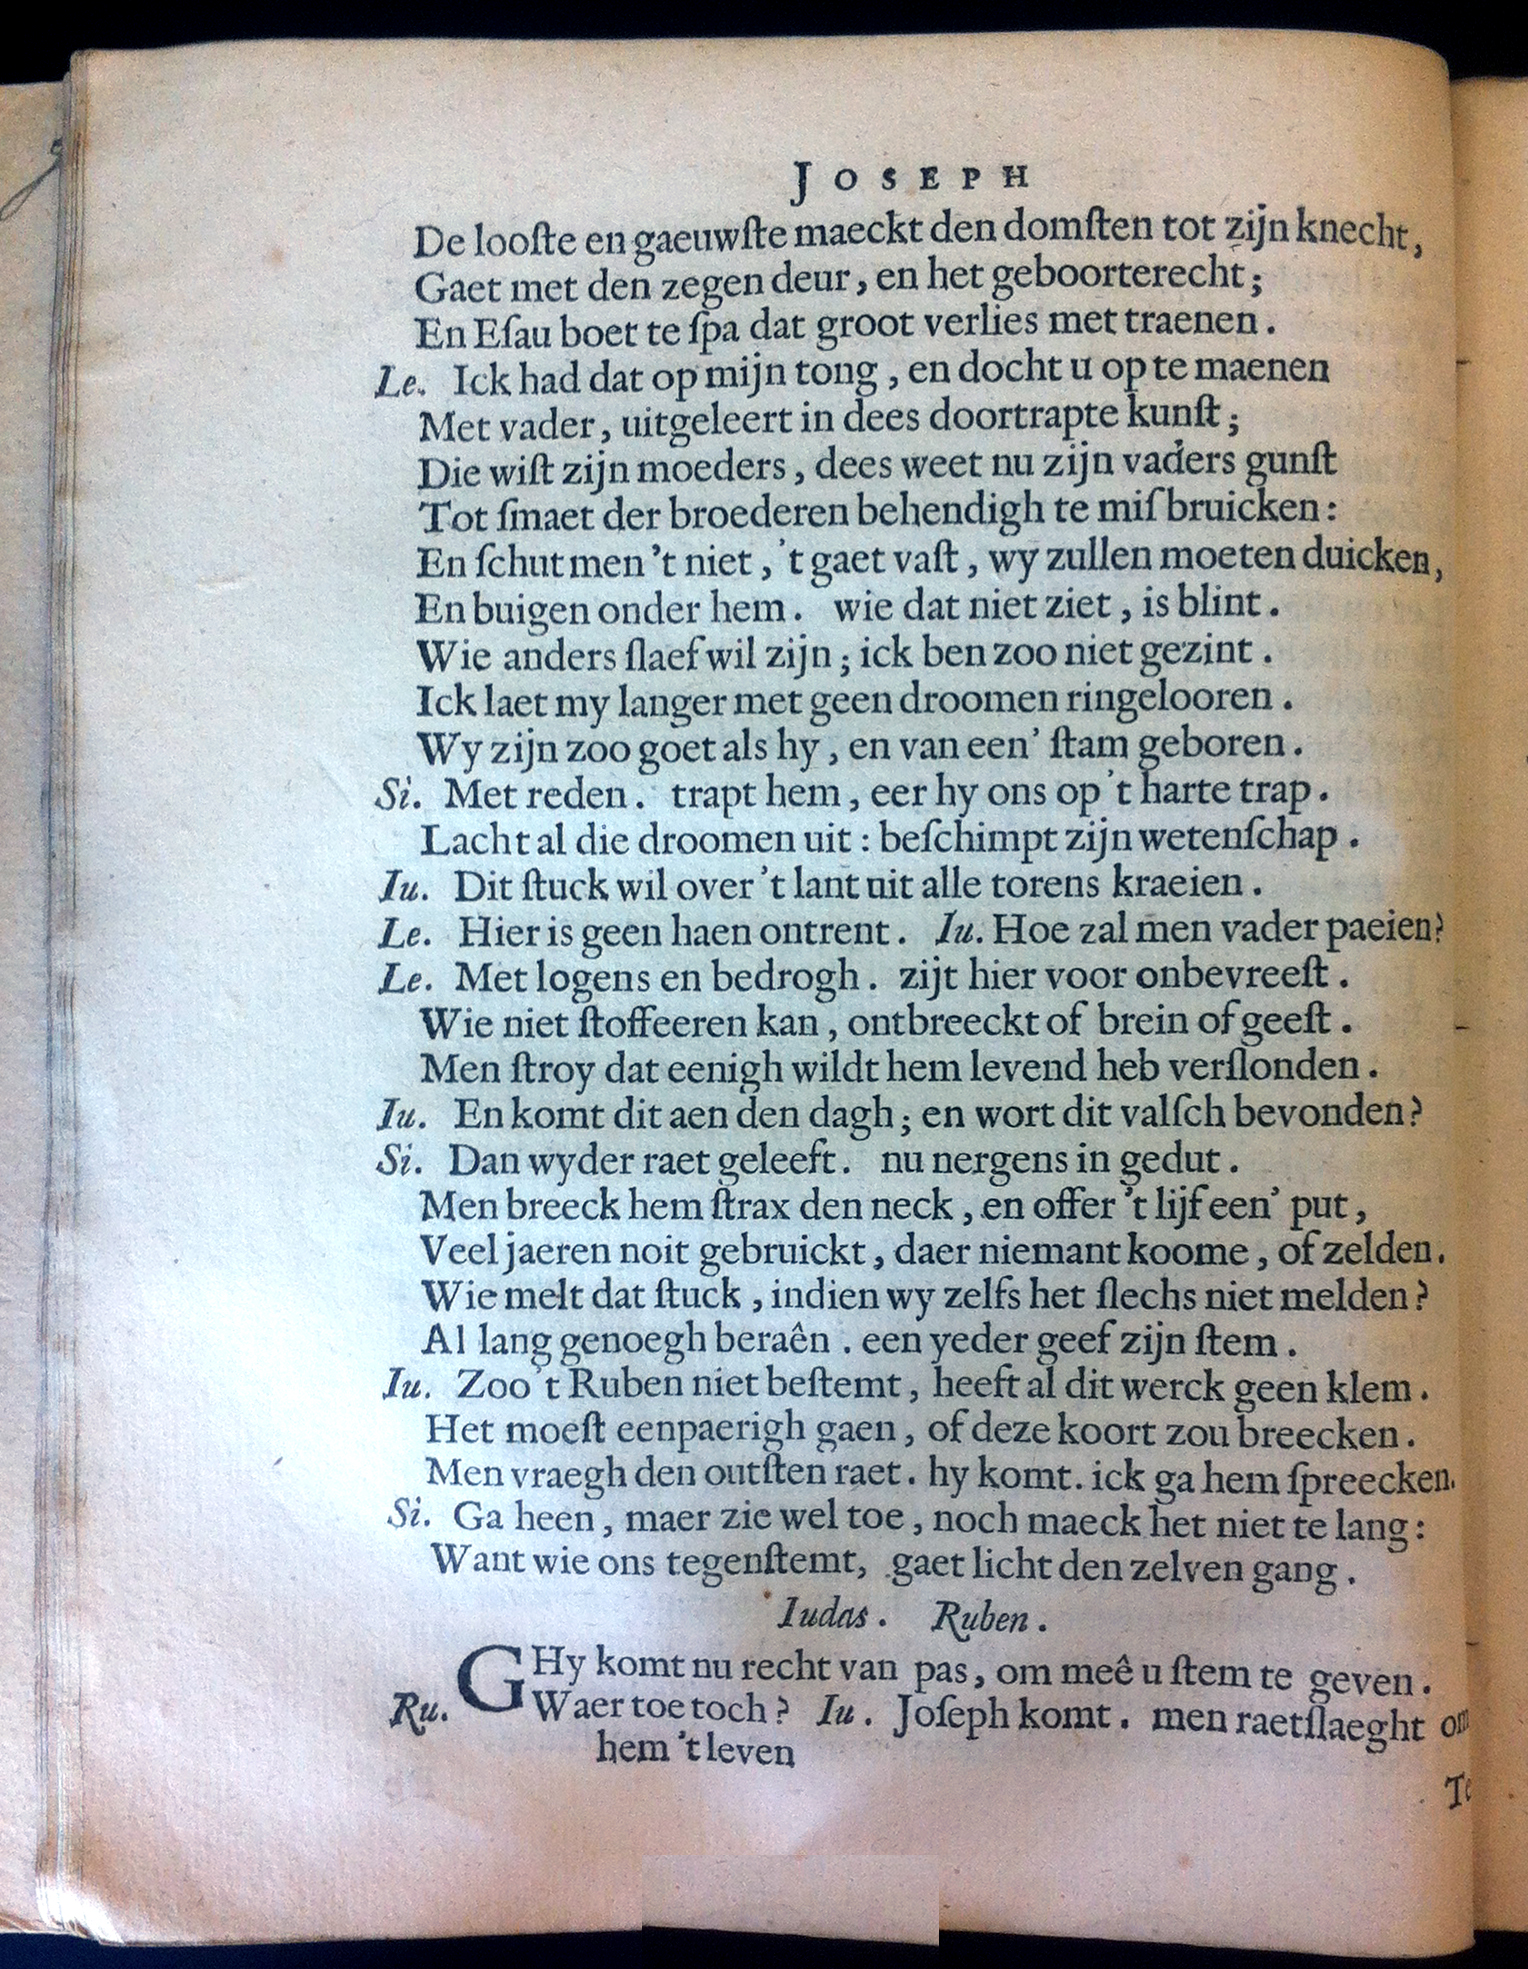 JOSEPH
De looſte en gaeuwſte maeckt den domſten tot zijn knecht,
Gaet met den zegen deur, en het geboorterecht;
En Eſau boet te ſpa dat groot verlies met traenen.
Le. Ick had dat op mijn tong, en docht u op te maenen
Met vader, uitgeleert in dees doortrapte kunſt;
Die wiſt zijn moeders, dees weet nu zijn vaders gunſt
Tot ſmaet der broederen behendigh te miſbruicken:
En ſchut men 't niet, 't gaet vaſt, wy zullen moeten duicken,
En buigen onder hem. wie dat niet ziet, is blint.
Wie anders ſlaef wil zijn; ick ben zoo niet gezint.
Ick laet my langer met geen droomen ringelooren.
Wy zijn zoo goet als hy, en van een' ſtam geboren.
Si. Met reden. trapt hem, eer hy ons op 't harte trap.
Lacht al die droomen uit: beſchimpt zijn wetenſchap.
Iu. Dit ſtuck wil over 't lant uit alle torens kraeien.
Le. Hier is geen haen ontrent. Iu. Hoe zal men vader paeien?
Le. Met logens en bedrogh. zijt hier voor onbevreeſt.
Wie niet ſtoffeeren kan, ontbreeckt of brein of geeſt.
Men ſtroy dat eenigh wildt hem levend heb verſlonden.
Iu. En komt dit aen den dagh; en wort dit valſch bevonden?
Si. Dan wyder raet geleeft. nu nergens in gedut.
Men breeck hem ſtrax den neck, en offer 't lijf een' put,
Veel jaeren noit gebruickt, daer niemant koome, of zelden.
Wie melt dat ſtuck, indien wy zelfs het ſlechs niet melden?
Al lang genoegh beraên. een yeder geef zijn ſtem.
Iu. Zoo 't Ruben niet beſtemt, heeft al dit werck geen klem.
Het moeſt eenpaerigh gaen, of deze koort zou breecken.
Men vraegh den outſten raet. hy komt. ick ga hem ſpreecken.
Si. Ga heen, maer zie wel toe, noch maeck het niet te lang:
Want wie ons tegenſtemt, gaet licht den zelven gang.
Iudas. Ruben.
GHy komt nu recht van pas, om meê u ſtem te geven.
Ru. Waer toe toch? Iu. Joſeph komt. men raetſlaeght om
hem 't leven
Te